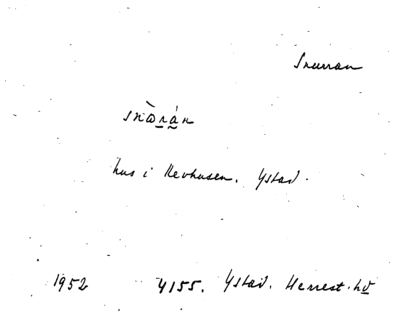 Snurran
snɷ̀rán
hus i Revhusen. Ystad.
1952 4155. Ystad. Herrest. hd